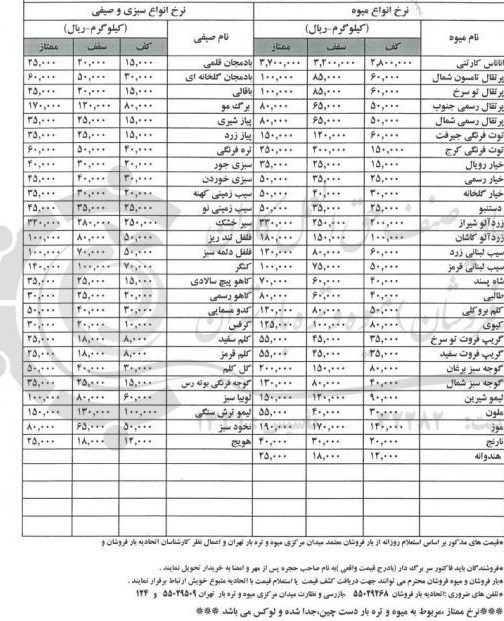 نرخ انواع میوه نرخ انواع سبزی و صیفی
نام میوه (کیلوگرم-ریال) نام صیفی (کیلوگرم-ریال)
کف سقف ممتاز کف سقف ممتاز
آناناس کارتنی ۲,۸۰۰,۰۰۰ ۳,۲۰۰,۰۰۰ ۳,۷۰۰,۰۰۰ بادمجان قلمی ۱۵,۰۰۰ ۲۰,۰۰۰ ۲۵,۰۰۰
پرتقال تامسون شمال ۶۰,۰۰۰ ۸۵,۰۰۰ ۱۰۰,۰۰۰ بادمجان گلخانه ای ۳۰,۰۰۰ ۵۰,۰۰۰ ۶۰,۰۰۰
پرتقال تو سرخ ۶۰,۰۰۰ ۸۵,۰۰۰ ۱۰۰,۰۰۰ باقالی ۱۵,۰۰۰ ۲۰,۰۰۰ ۲۵,۰۰۰
پرتقال رسمی جنوب ۵۰,۰۰۰ ۶۵,۰۰۰ ۸۰,۰۰۰ برگ مو ۸۰,۰۰۰ ۱۲۰,۰۰۰ ۱۷۰,۰۰۰
پرتقال رسمی شمال ۵۰,۰۰۰ ۶۵,۰۰۰ ۸۰,۰۰۰ پیاز شیری ۱۵,۰۰۰ ۲۵,۰۰۰ ۳۵,۰۰۰
توت فرنگی جیرفت ۶۰,۰۰۰ ۱۲۰,۰۰۰ ۱۵۰,۰۰۰ پیاز زرد ۱۵,۰۰۰ ۲۵,۰۰۰ ۳۵,۰۰۰
توت فرنگی کرج ۱۵۰,۰۰۰ ۲۰۰,۰۰۰ ۲۵۰,۰۰۰ تره فرنگی ۴۰,۰۰۰ ۵۰,۰۰۰ ۶۰,۰۰۰
خیار رویال ۱۵,۰۰۰ ۲۵,۰۰۰ ۳۵,۰۰۰ سبزی جور ۲۰,۰۰۰ ۳۰,۰۰۰ ۴۰,۰۰۰
خیار رسمی ۲۵,۰۰۰ ۳۵,۰۰۰ ۵۰,۰۰۰ سبزی خوردن ۳۰,۰۰۰ ۴۰,۰۰۰ ۴۵,۰۰۰
خیار گلخانه ۳۰,۰۰۰ ۴۰,۰۰۰ ۵۰,۰۰۰ سیب زمینی کهنه ۲۰,۰۰۰ ۳۰,۰۰۰ ۳۵,۰۰۰
دستنبو ۲۵,۰۰۰ ۳۵,۰۰۰ ۵۰,۰۰۰ سیب زمینی نو ۲۵,۰۰۰ ۳۵,۰۰۰ ۴۵,۰۰۰
زردآلو شیراز ۲۰۰,۰۰۰ ۲۵۰,۰۰۰ ۳۳۰,۰۰۰ سیر خشک ۲۵۰,۰۰۰ ۲۸۰,۰۰۰ ۳۲۰,۰۰۰
زردآلو کاشان ۱۰۰,۰۰۰ ۱۵۰,۰۰۰ ۱۸۰,۰۰۰ فلفل تند ریز ۵۰,۰۰۰ ۸۰,۰۰۰ ۱۰۰,۰۰۰
سیب لبنانی زرد ۶۰,۰۰۰ ۸۰,۰۰۰ ۱۲۰,۰۰۰ فلفل دلمه سبز ۵۰,۰۰۰ ۷۰,۰۰۰ ۱۰۰,۰۰۰
سیب لبنانی قرمز ۵۰,۰۰۰ ۷۵,۰۰۰ ۱۰۰,۰۰۰ کنگر ۷۰,۰۰۰ ۱۰۰,۰۰۰ ۱۴۰,۰۰۰
شاه پسند ۴۰,۰۰۰ ۶۰,۰۰۰ ۷۰,۰۰۰ کاهو پیچ سالادی ۱۵,۰۰۰ ۲۵,۰۰۰ ۳۵,۰۰۰
طالبی ۴۰,۰۰۰ ۶۰,۰۰۰ ۸۰,۰۰۰ کاهو رسمی ۲۰,۰۰۰ ۲۵,۰۰۰ ۳۰,۰۰۰
کلم بروکلی ۵۰,۰۰۰ ۸۰,۰۰۰ ۱۲۰,۰۰۰ کدو مسمایی ۳۰,۰۰۰ ۴۰,۰۰۰ ۵۰,۰۰۰
کیوی ۸۰,۰۰۰ ۱۰۰,۰۰۰ ۱۲۵,۰۰۰ کرفس ۱۰,۰۰۰ ۲۰,۰۰۰ ۳۰,۰۰۰
گریپ فروت تو سرخ ۳۵,۰۰۰ ۴۵,۰۰۰ ۵۵,۰۰۰ کلم سفید ۸,۰۰۰ ۱۸,۰۰۰ ۲۵,۰۰۰
گریپ فروت سفید ۳۵,۰۰۰ ۴۵,۰۰۰ ۵۵,۰۰۰ کلم قرمز ۸,۰۰۰ ۱۸,۰۰۰ ۲۵,۰۰۰
گوجه سبز برغان ۸۰,۰۰۰ ۱۵۰,۰۰۰ ۲۰۰,۰۰۰ گل کلم ۳۰,۰۰۰ ۴۰,۰۰۰ ۵۰,۰۰۰
گوجه سبز شمال ۴۰,۰۰۰ ۸۰,۰۰۰ ۱۳۰,۰۰۰ گوجه فرنگی بوته رس ۱۵,۰۰۰ ۲۵,۰۰۰ ۳۵,۰۰۰
لیمو شیرین ۹۰,۰۰۰ ۱۲۰,۰۰۰ ۱۵۰,۰۰۰ لوبیا سبز ۶۰,۰۰۰ ۸۰,۰۰۰ ۱۰۰,۰۰۰
ملون ۳۰,۰۰۰ ۴۰,۰۰۰ ۵۵,۰۰۰ لیمو ترش سنگی ۱۰۰,۰۰۰ ۱۳۰,۰۰۰ ۱۵۰,۰۰۰
موز ۱۴۰,۰۰۰ ۱۷۰,۰۰۰ ۱۹۰,۰۰۰ نخود سبز ۵۰,۰۰۰ ۶۵,۰۰۰ ۸۰,۰۰۰
نارنج ۲۰,۰۰۰ ۳۰,۰۰۰ ۴۰,۰۰۰ هویج ۱۲,۰۰۰ ۱۸,۰۰۰ ۲۵,۰۰۰
هندوانه ۱۲,۰۰۰ ۱۸,۰۰۰ ۲۵,۰۰۰
*قیمت های مذکور بر اساس استعلام روزانه از بار فروشان معتمد میدان مرکزی میوه و تره بار تهران و اعمال نظر کارشناسان اتحادیه بار فروشان و
*فروشندگان باید فاکتور سر برگ دار (بادرج قیمت واقعی )به نام صاحب حجره پس از مهر و امضا به خریدار تحویل نمایند .
*بار فروشان و میوه فروشان محترم می توانند جهت دریافت کشف قیمت یا استعلام قیمت با اتحادیه متبوع خویش ارتباط برقرار نمایند .
*تلفن های ضروری :اتحادیه بار فروشان ۵۵۰۲۹۲۶۸ بازرسی و نظارت میدان مرکزی میوه و تره بار تهران ۵۵۰۲۹۵۰۹ و ۱۲۴
***نرخ ممتاز ،مربوط به میوه و تره بار دست چین،جدا شده و لوکس می باشد ***